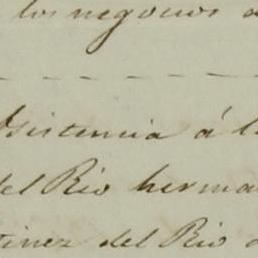 los negocios
Asistencia á l
del Rio herma
tinez del Rio